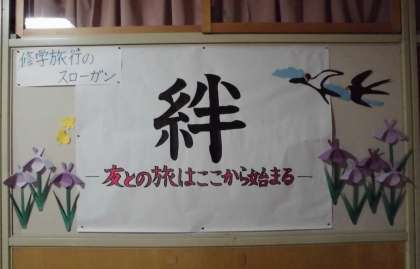 修学旅行の
スローガン
絆
―友との旅はここから始まる―